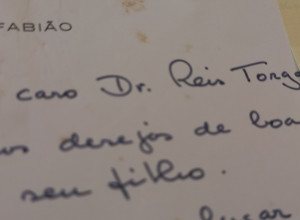 FABIÃO
caro Dr. Reis Torga
os desejos de boa
seu filho.